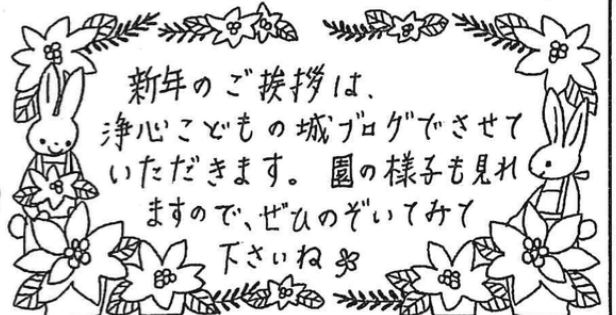 新年のご挨拶は、
浄心こどもの城ブログでさせて
いただきます。園の様子も見れ
ますので、ぜひのぞいてみて
下さいね